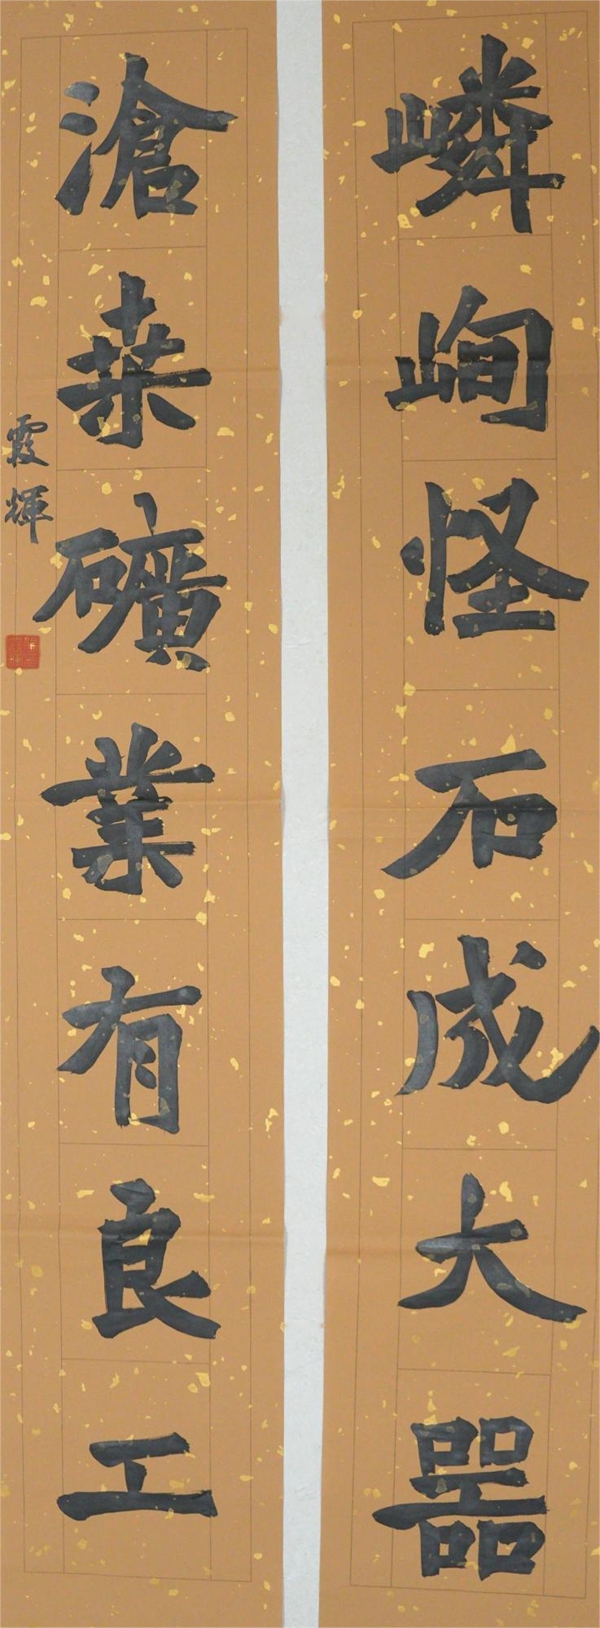 嶙峋怪石成大器
滄桒礦業有良工
霞輝